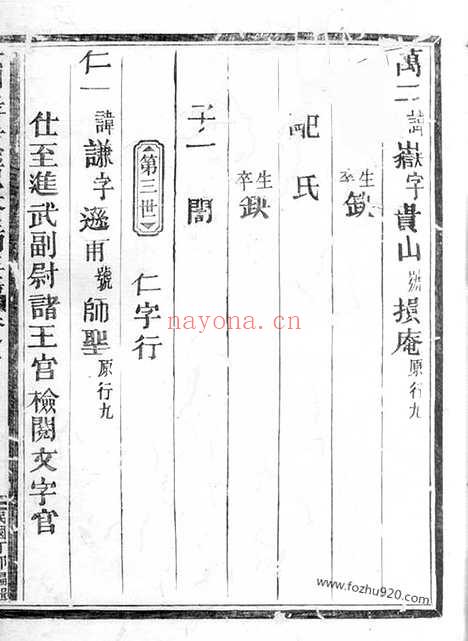 萬二諱嶽字貴山號損庵原行九
生卒缺
配氏
生卒缺
子一 誾
第三世 仁字行
仁一諱謙字遜甫號師聖原行九
仕至進武副尉諸王官檢閱文字官
nayona.cn
www.fozhu920.com